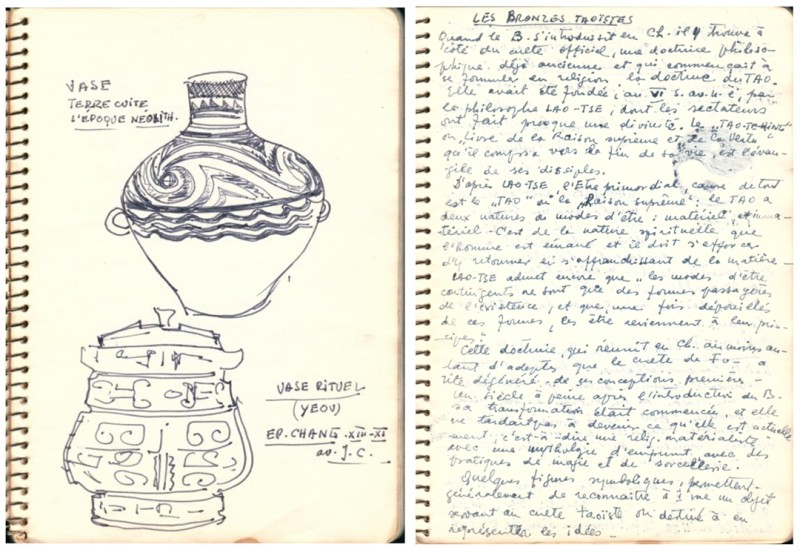 VASE
TERRE CUITE
L'ÉPOQUE NÉOLITH.
VASE RITUEL
(YEOU)
EP. CHANG - XIII-XI
av. J.C.
LES BRONZES TAOÏSTES
Quand le B. s'introduisit en Ch. il y trouva à
côté du culte officiel, une doctrine philoso-
phique déjà ancienne et qui commençait à
se formuler en religion la doctrine du TAO.
Elle avait été fondée, au VI s. av. n. è, par
le philosophe LAO-TSE, dont les sectateurs
ont fait presque une divinité. Le "TAO-TCHING"
ou "Livre de la Raison suprême et de la Vertu"
qu'il composa vers la fin de sa vie, est l'évan-
gile de ses disciples.
D'après LAO-TSE, l'Etre primordial, cause de tout
est le "TAO" ou la "Raison suprême": le TAO a
deux natures ou modes d'être: matériel et imma-
tériel. C'est de la nature spirituelle que
l'homme est émané et il doit s'efforcer
d'y retourner en s'affranchissant de la matière -
LAO-TSE admet encore que "les modes d'être
contingents ne sont que des formes passagères
de l'existence, et que, une fois dépouillés
de ces formes, les être reviennent à leur prin-
cipes."
Cette doctrine, qui réunit en Ch. au moins au-
tant d'adeptes que le culte de Fo - a
vite dégénéré de ses conceptions premières -
Un siècle à peine après l'introduction du B.
sa transformation était commencée, et elle
ne tardait pas à devenir ce qu'elle est actuelle
ment, c'est-à-dire une relig. matérialiste
avec une mythologie d'emprunt, avec des
pratiques de magie et de sorcellerie.
Quelques figures symboliques, permettent
généralement de reconnaître à 1 me un objet
servant au culte taoïste ou destiné à en
représenter les idées -